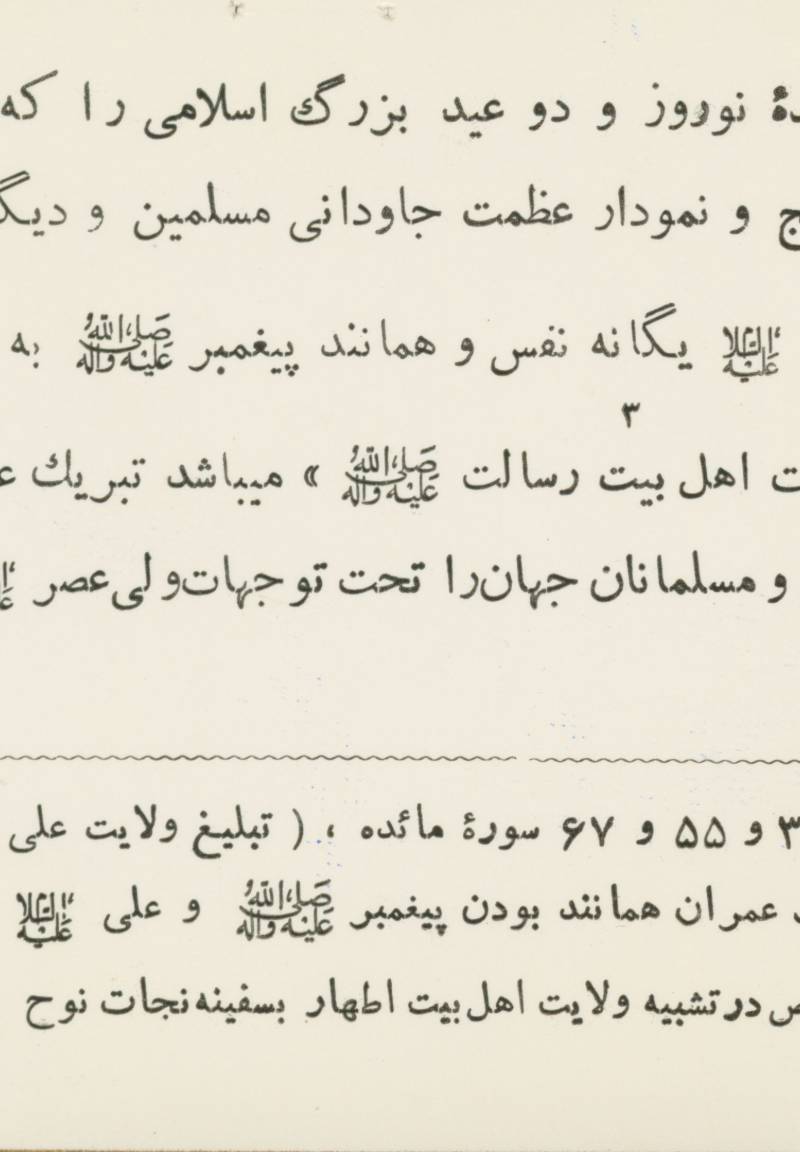 نوروز و دو عید بزرگ اسلامی را که
و نمودار عظمت جاودانی مسلمین و دیگ
علیه السلام یگانه نفس و همانند پیغمبر صلی الله علیه وآله به
۳
ت اهل بیت رسالت صلی الله علیه وآله » میباشد تبریك ع
و مسلمانان جهان‌را تحت توجهات ولی عصر
۳ و ۵۵ و ۶۷ سورۀ مائده ، ( تبلیغ ولایت علی
عمران همانند بودن پیغمبر صلی الله علیه وآله و علی علیه السلام
ص در تشبیه ولایت اهل بیت اطهار بسفینه نجات نوح